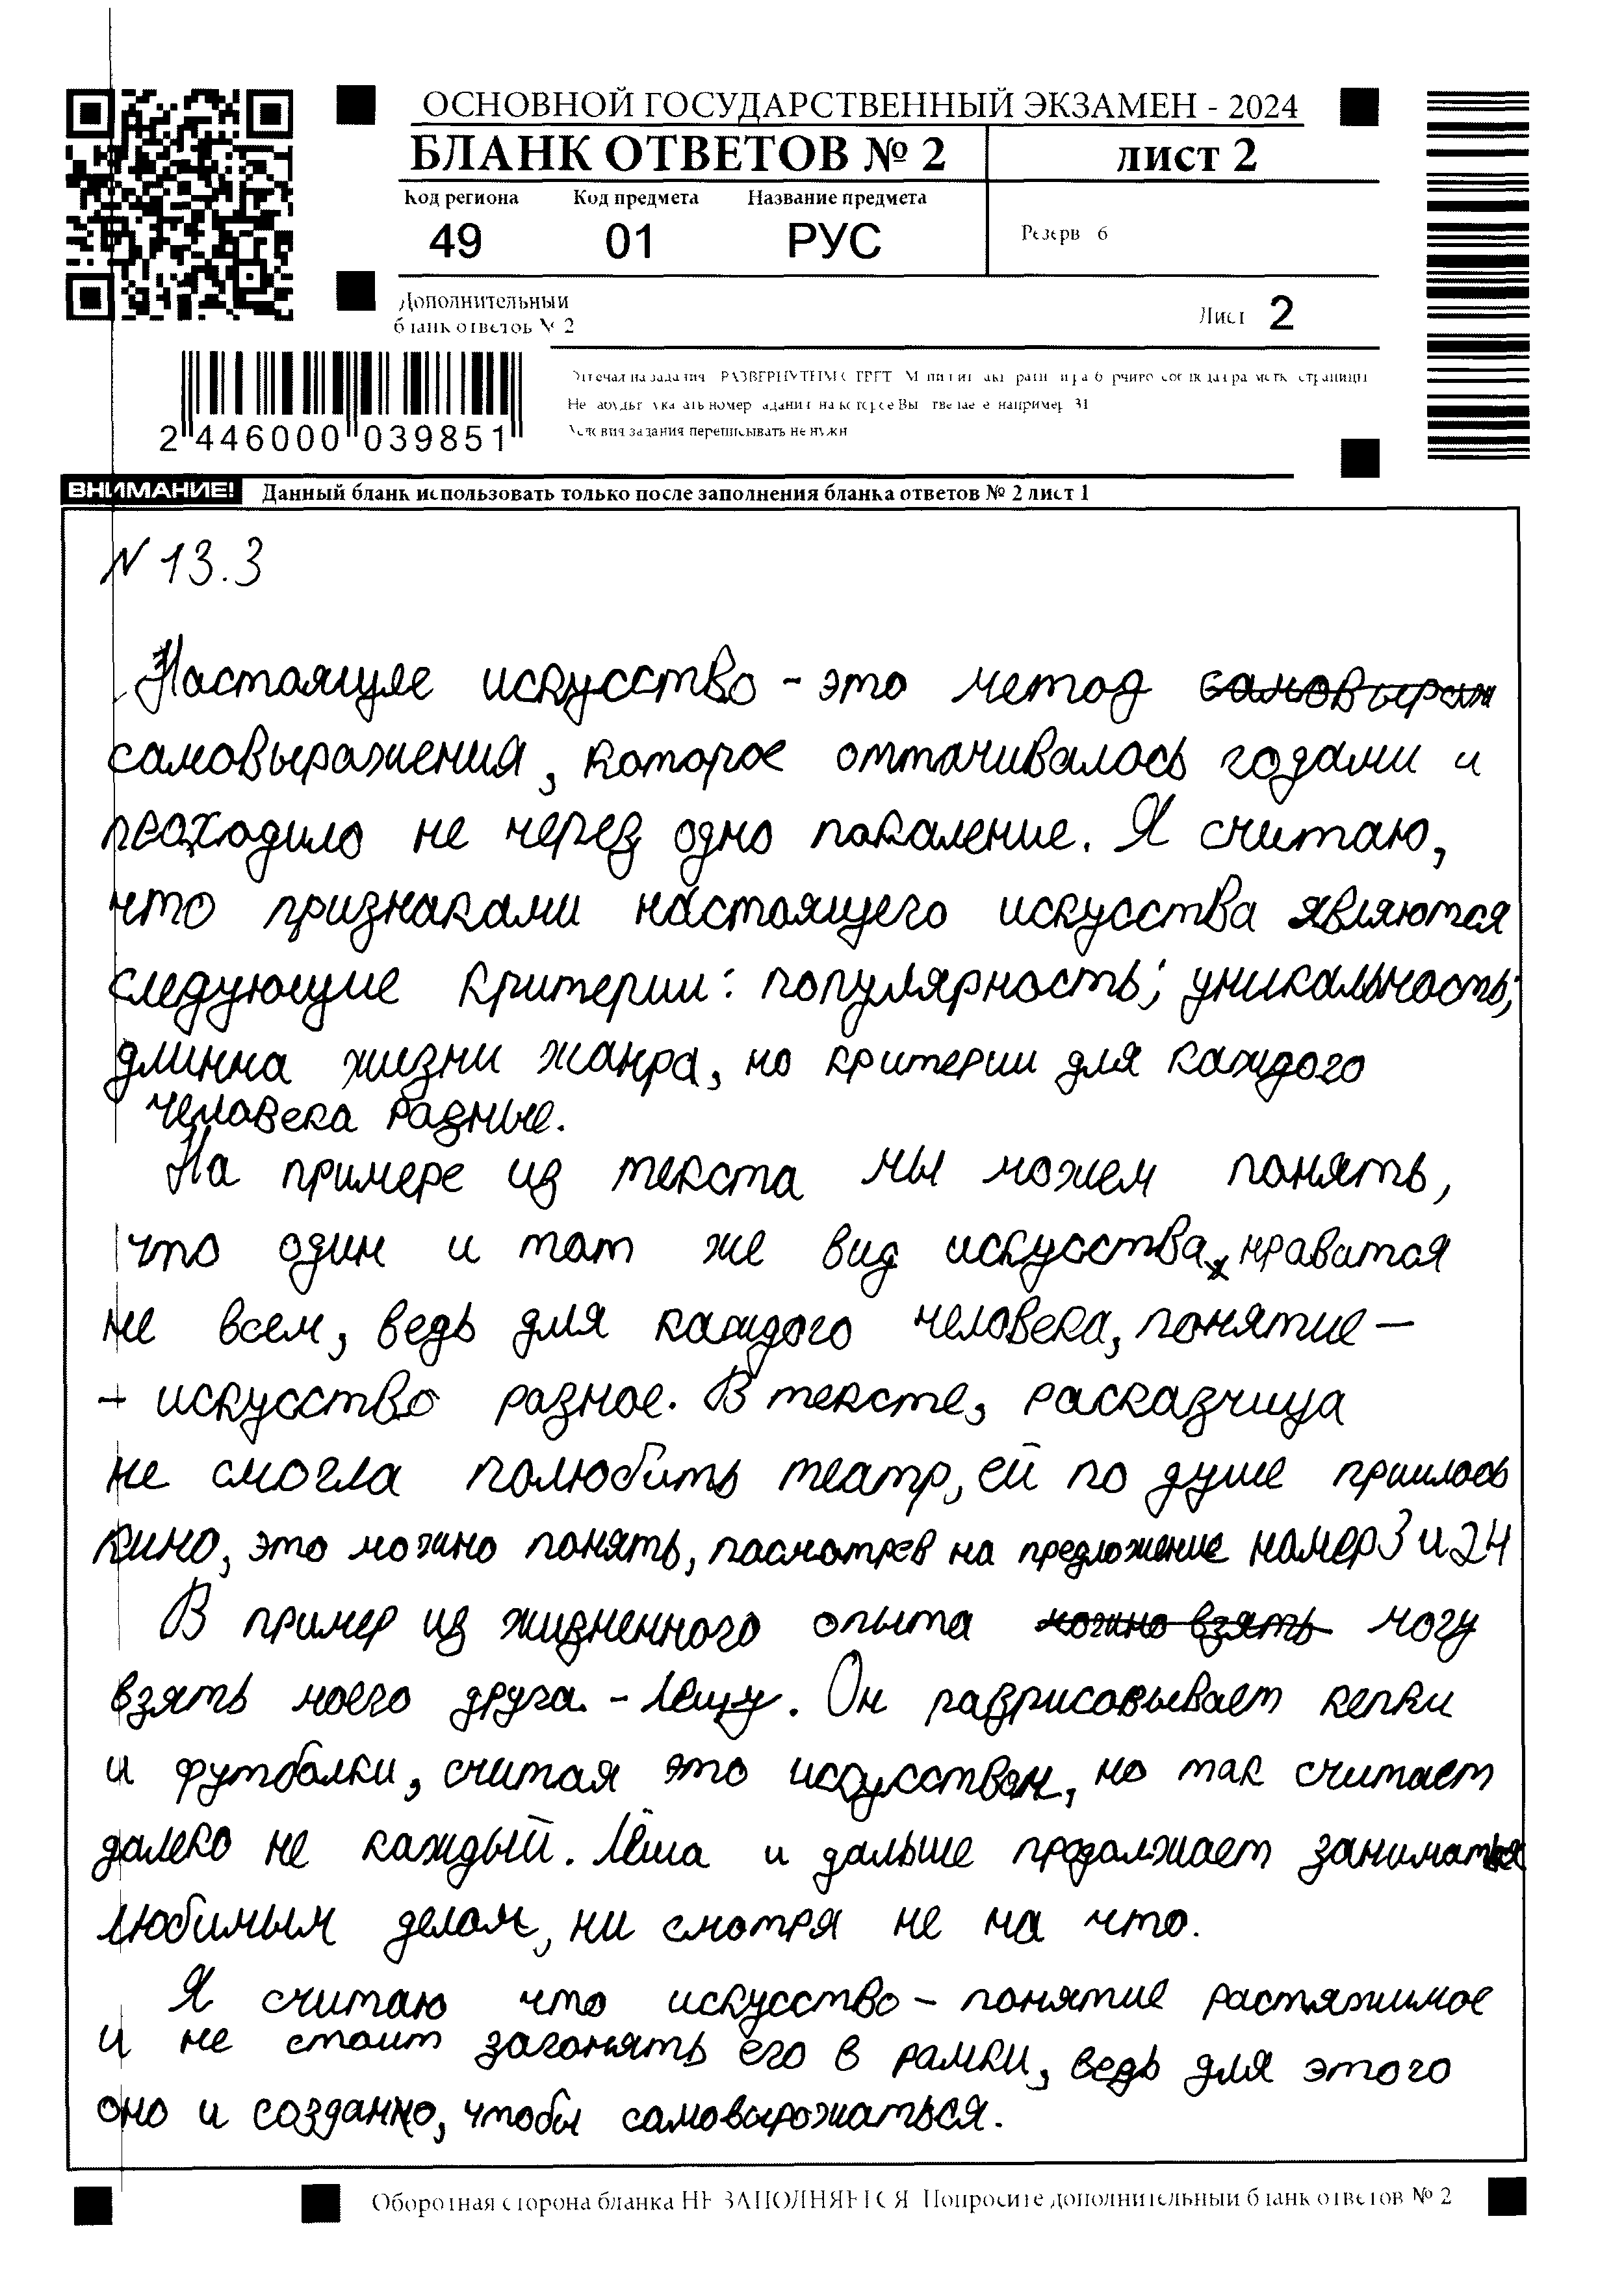 ОСНОВНОЙ ГОСУДАРСТВЕННЫЙ ЭКЗАМЕН - 2024
БЛАНК ОТВЕТОВ № 2
лист 2
Код региона Код предмета Название предмета
49 01 РУС
Резерв 6
Дополнительный
бланк ответов № 2
Лист 2
2 446000 039851
Условия задания переписывать не нужн
ВНИМАНИЕ! Данный бланк использовать только после заполнения бланка ответов № 2 лист 1
N 13.3
Настоящее искусство - это метод самовыраж
самовыражения, которое оттачивалось годами и
проходило не через одно покаление. Я считаю,
что признаками настоящего искусства являются
следующие критерии: популярность; уникальность;
длинна жизни жанра, но критерии для каждого
человека разные.
На примере из текста мы можем понять,
что один и тот же вид искусства нравится
не всем, ведь для каждого человека, понятие —
- искусство разное. В тексте, расказчица
не смогла полюбить театр, ей по душе пришлось
кино, это можно понять, посмотрев на предложение номер 3 и 24
В пример из жизненного опыта можно взять могу
взять моего друга - Лёшу. Он разрисовывает кепки
и футболки, считая это искусством, но так считает
далеко не каждый. Лёша и дальше продолжает заниматься
любимым делом, ни смотря не на что.
Я считаю что искусство - понятие растяжимое
и не стоит загонять его в рамки, ведь для этого
оно и созданно, чтобы самовырожаться.
Оборотная сторона бланка НЕ ЗАПОЛНЯЕТСЯ Попросите дополнительный бланк ответов № 2